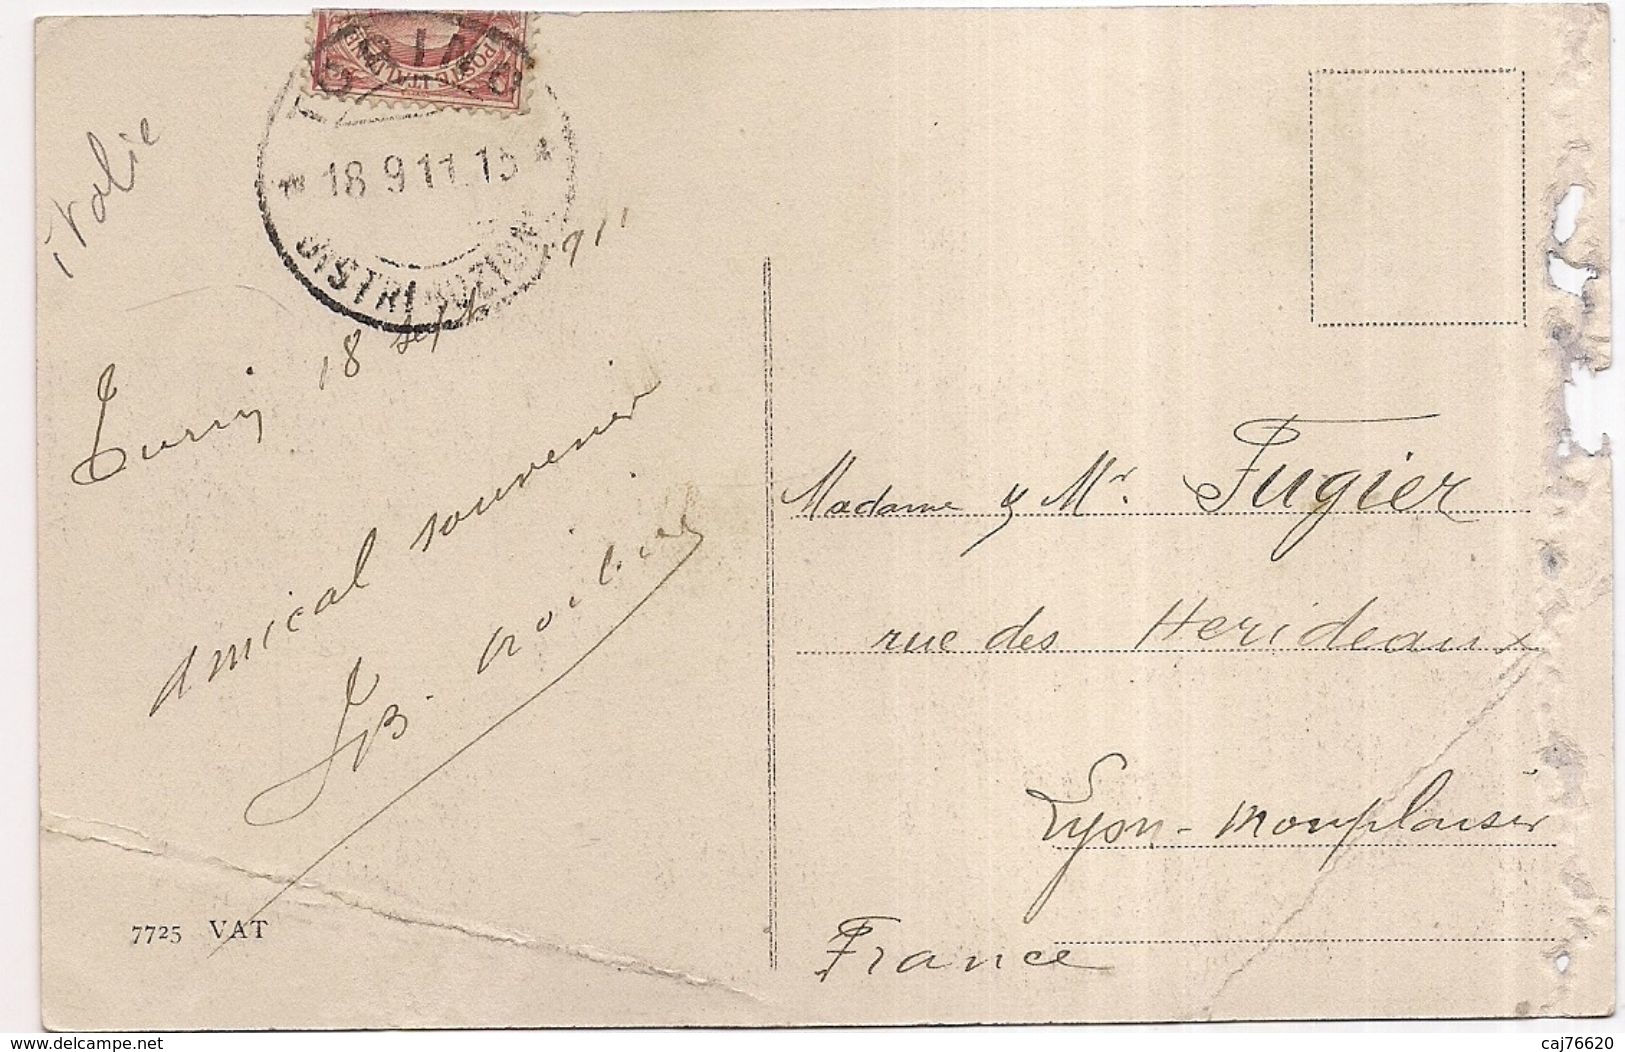 POSTE ITALIANE
TORINO
18 9 11.15
DISTRIBUZIONE
italie
Turin 18 sept 1911
Amical souvenir
JB.
7725 VAT
Madame & Mr. Fugier
rue des Herideaux
Lyon-monplaisir
France
www.delcampe.net
caj76620